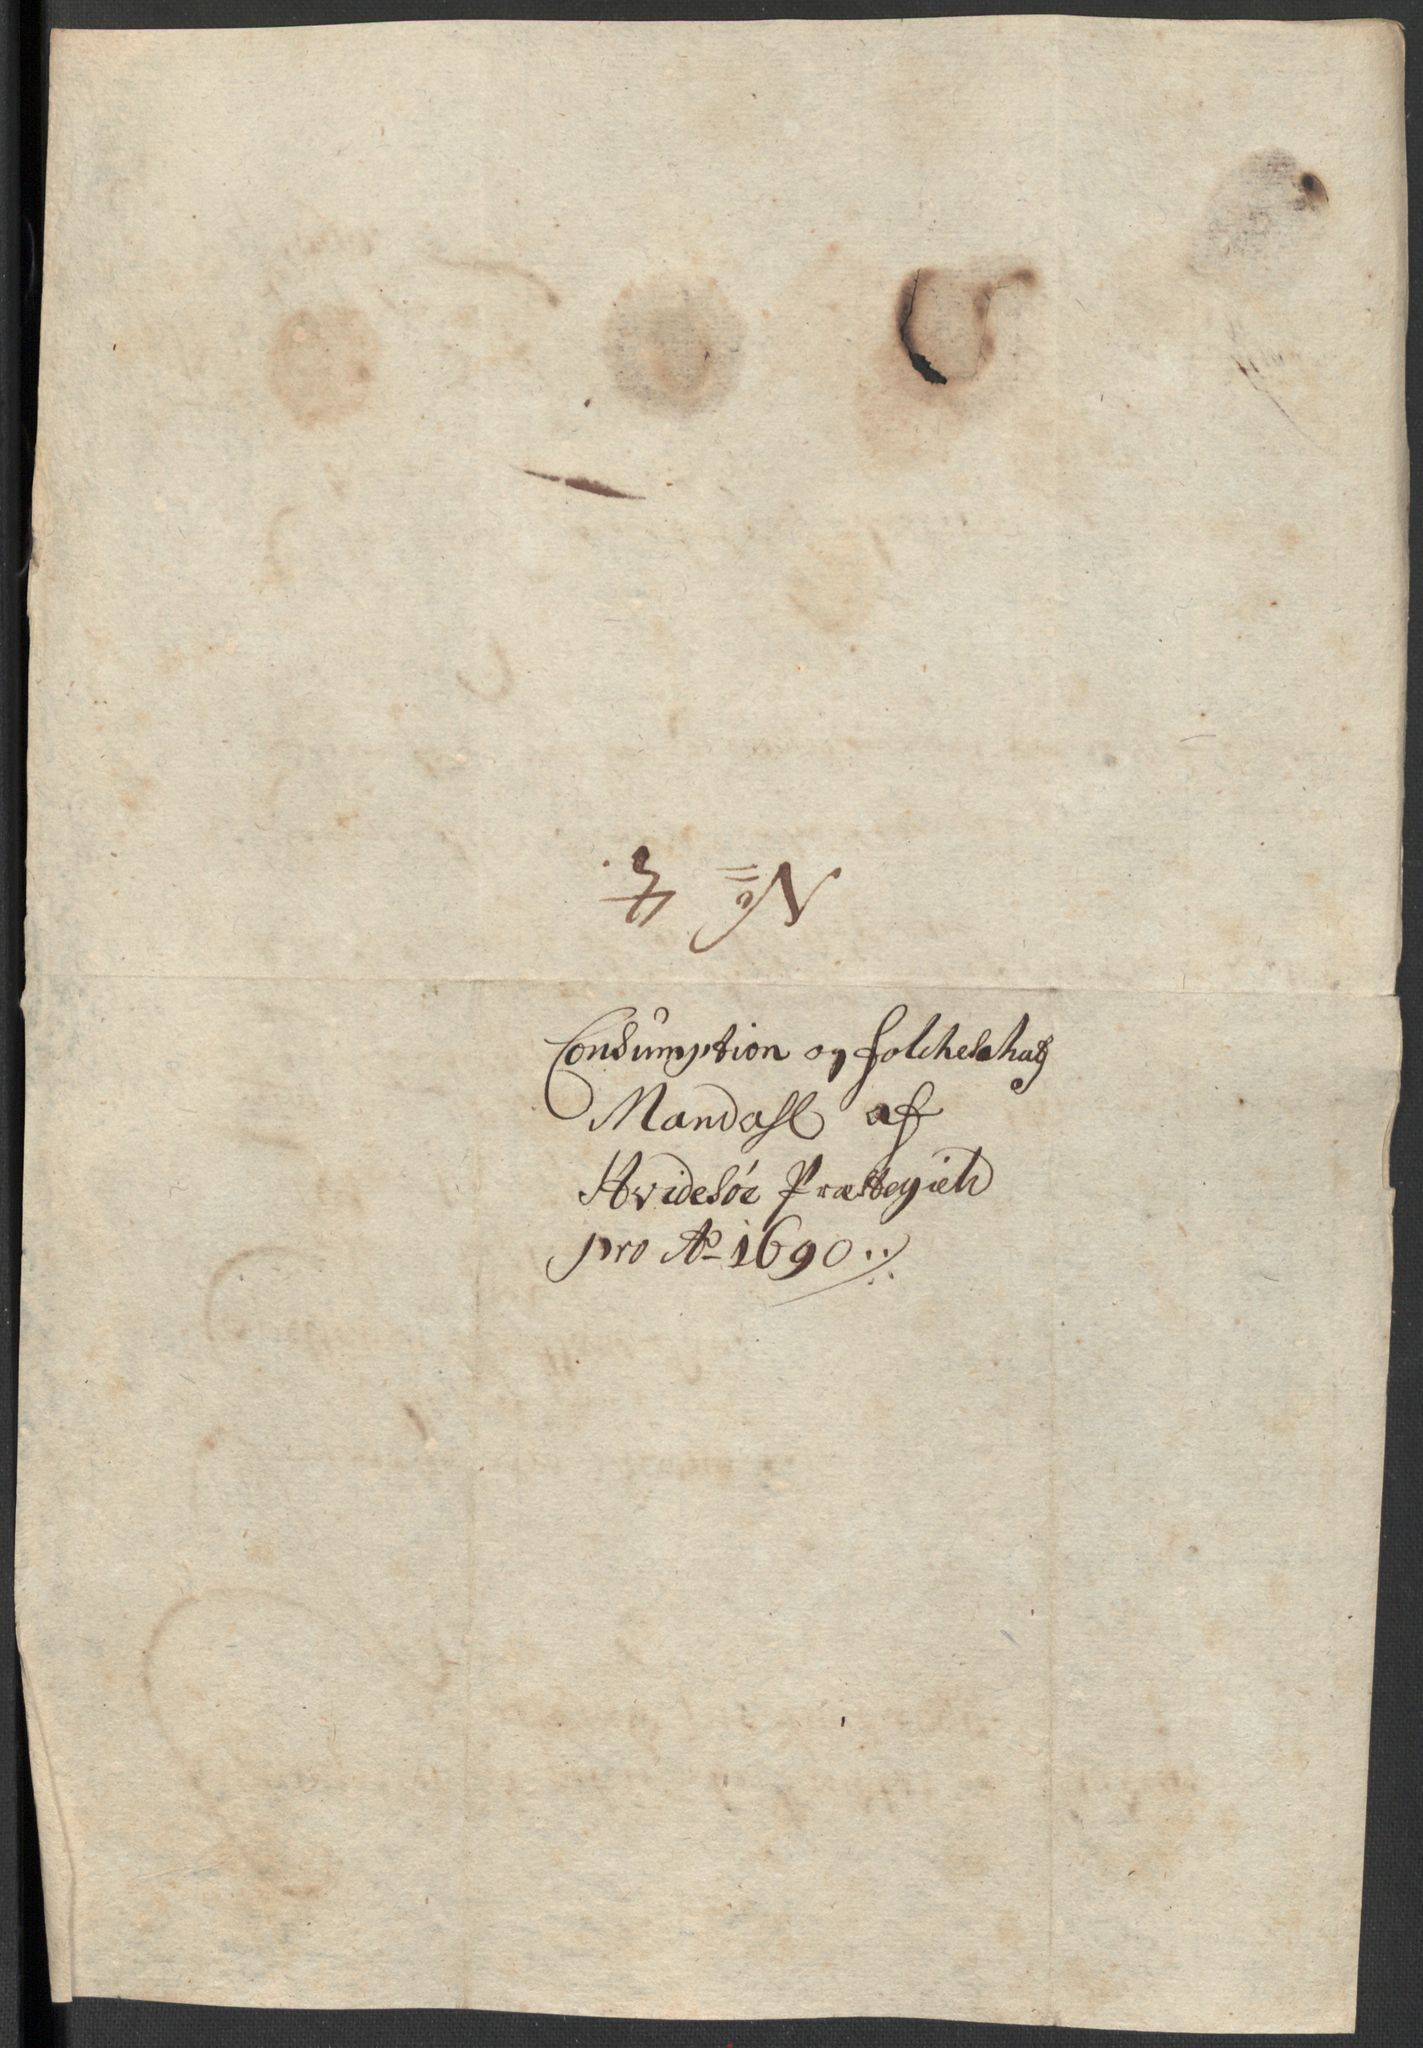 No 7.
Consumption og folcheschatz
Mandall af
Hvidesöe Præstegield
pro Ao 1690